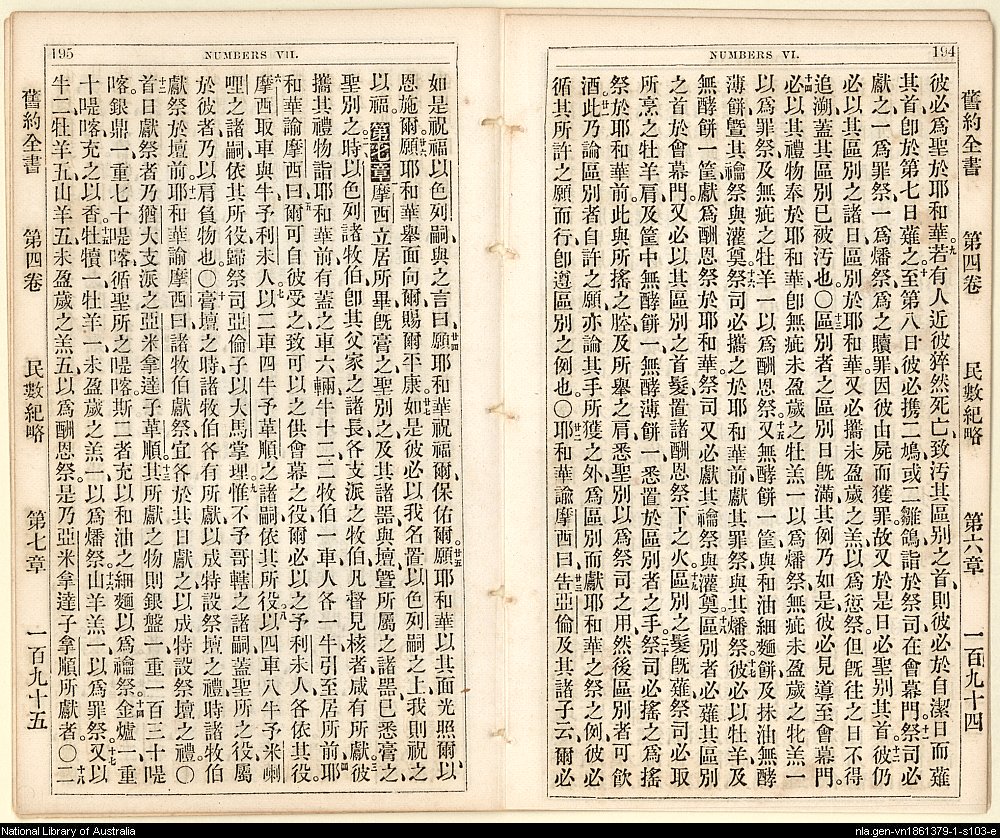 194
NUMBERS VI.
舊約全書 第四卷 民數紀略 第六章 一百九十四
彼必爲聖於耶和華若有人近彼猝然死亡致汚其區别之首則彼必於自潔日而薙
其首卽於第七日薙之至第八日彼必携二鳩或二雛鴿詣於祭司在會幕門祭司必
獻之一爲罪祭一爲燔祭爲之贖罪因彼由屍而獲罪故又於是日必聖别其首彼仍
必以其區别之諸日區别於耶和華又必攜未盈歲之羔以爲愆祭但旣往之日不得
追溯蓋其區别已被汚也〇區别者之區别日旣滿其例乃如是彼必見導至會幕門
必以其禮物奉於耶和華卽無疵未盈歲之牡羔一以爲燔祭無疵未盈歲之牝羔一
以爲罪祭及無疵之牡羊一以爲酬恩祭又無酵餅一筐與和油細麵餅及抹油無酵
薄餅曁其禴祭與灌奠祭司必攜之於耶和華前獻其罪祭與其燔祭彼必以牡羊及
無酵餅一筐獻爲酬恩祭於耶和華祭司又必獻其禴祭與灌奠區别者必薙其區别
之首於會幕門又必以其區别之首髮置諸酬恩祭下之火區别之髮旣薙祭司必取
所烹之牡羊肩及筐中無酵餅一無酵薄餅一悉置於區别者之手祭司必搖之爲搖
祭於耶和華前此與所搖之腔及所舉之肩悉聖别以爲祭司之用然後區别者可飮
酒此乃論區别者自許之願亦論其手所獲之外爲區别而獻耶和華之祭之例彼必
循其所許之願而行卽遵區别之例也〇耶和華諭摩西曰告亞倫及其諸子云爾必
195
NUMBERS VII.
如是祝福以色列嗣與之言曰願耶和華祝福爾保佑爾願耶和華以其面光照爾以
恩施爾願耶和華舉面向爾賜爾平康如是彼必以我名置以色列嗣之上我則祝之
以福第七章摩西立居所畢旣膏之聖别之及其諸器與壇曁所屬之諸器已悉膏之
聖别之時以色列諸牧伯卽其父家之諸長各支派之牧伯凡督見核者咸有所獻彼
攜其禮物詣耶和華前有蓋之車六輛牛十二二牧伯一車人各一牛引至居所前耶
和華諭摩西曰爾可自彼受之致可以之供會幕之役爾必以之予利未人各依其役
摩西取車與牛予利未人以二車四牛予革順之諸嗣依其所役以四車八牛予米喇
哩之諸嗣依其所役歸祭司亞倫子以大馬掌理惟不予哥轄之諸嗣蓋聖所之役屬
於彼者乃以肩負物也〇膏壇之時諸牧伯各有所獻以成特設祭壇之禮時諸牧伯
獻祭於壇前耶和華諭摩西曰諸牧伯獻祭宜各於其日獻之以成特設祭壇之禮〇
首日獻祭者乃猶大支派之亞米拿達子革順其所獻之物則銀盤一重一百三十㖷
喀銀鼎一重七十㖷喀循聖所之㖷喀斯二者充以和油之細麵以爲禴祭金爐一重
十㖷喀充之以香牡犢一牡羊一未盈歲之羔一以爲燔祭山羊羔一以爲罪祭又以
牛二牡羊五山羊五未盈歲之羔五以爲酬恩祭是乃亞米拿達子拿順所獻者〇二
舊約全書 第四卷 民數紀略 第七章 一百九十五
National Library of Australia
nla.gen-vn1861379-1-s103-e